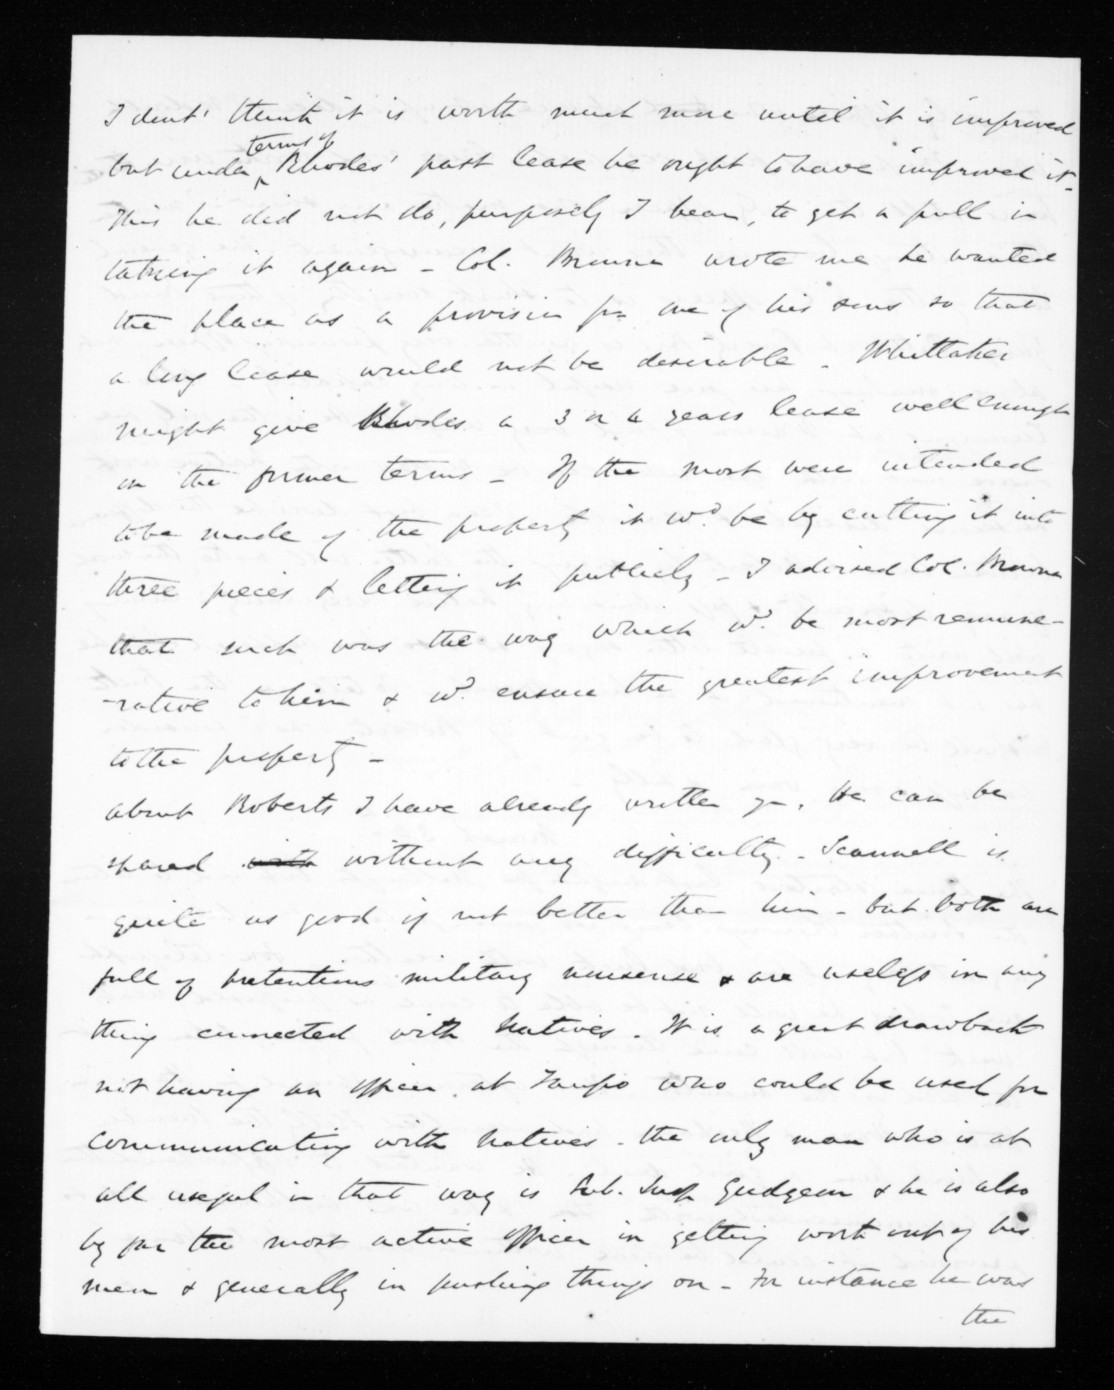 I dont' think it is worth much more until it is improved
but under terms of Rhodes' past lease he ought to have improved it -
This he did not do, purposely I hear, to get a pull in
taking it again - Col. Browne wrote me he wanted
the place as a provision for one of his sons so that
a long lease would not be desirable - Whittaker
might give Rhodes a 3 or 4 years lease well enough
on the former terms - If the most were intended
to be made of the property it wd. be by cutting it into
three pieces & letting it publicly - I advised Col. Browne
that such was the way which wd. be most remune-
-rative to him & wd. ensure the greatest improvement
to the property -
about Roberts I have already written you. He can be
spared with without any difficulty - Scannell is
quite as good if not better than him - but both are
full of pretentious military nonsense & are useless in any
thing connected with Natives. It is a great drawback
not having an officer at Taupo who could be used for
communicating with Natives - the only man who is at
all useful in that way is Sub. Insp Gudgeon & he is also
by far the most active officer in getting work out of his
men & generally in pushing things on - For instance he was
the